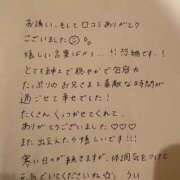 お誘い、そして口コミありがとう
ございました
嬉しい言葉ばかり…!! 恐縮です!
とても紳士で穏やかで包容力
たっぷりのお兄さまと素敵な時間が
過ごせて幸せでした!
たくさんくっつかせてくれて、
ありがとうございました♡♡♡
また出会えたら嬉しいです!!!
寒い日が続きますが、体調気をつけて
お過ごしくださいね